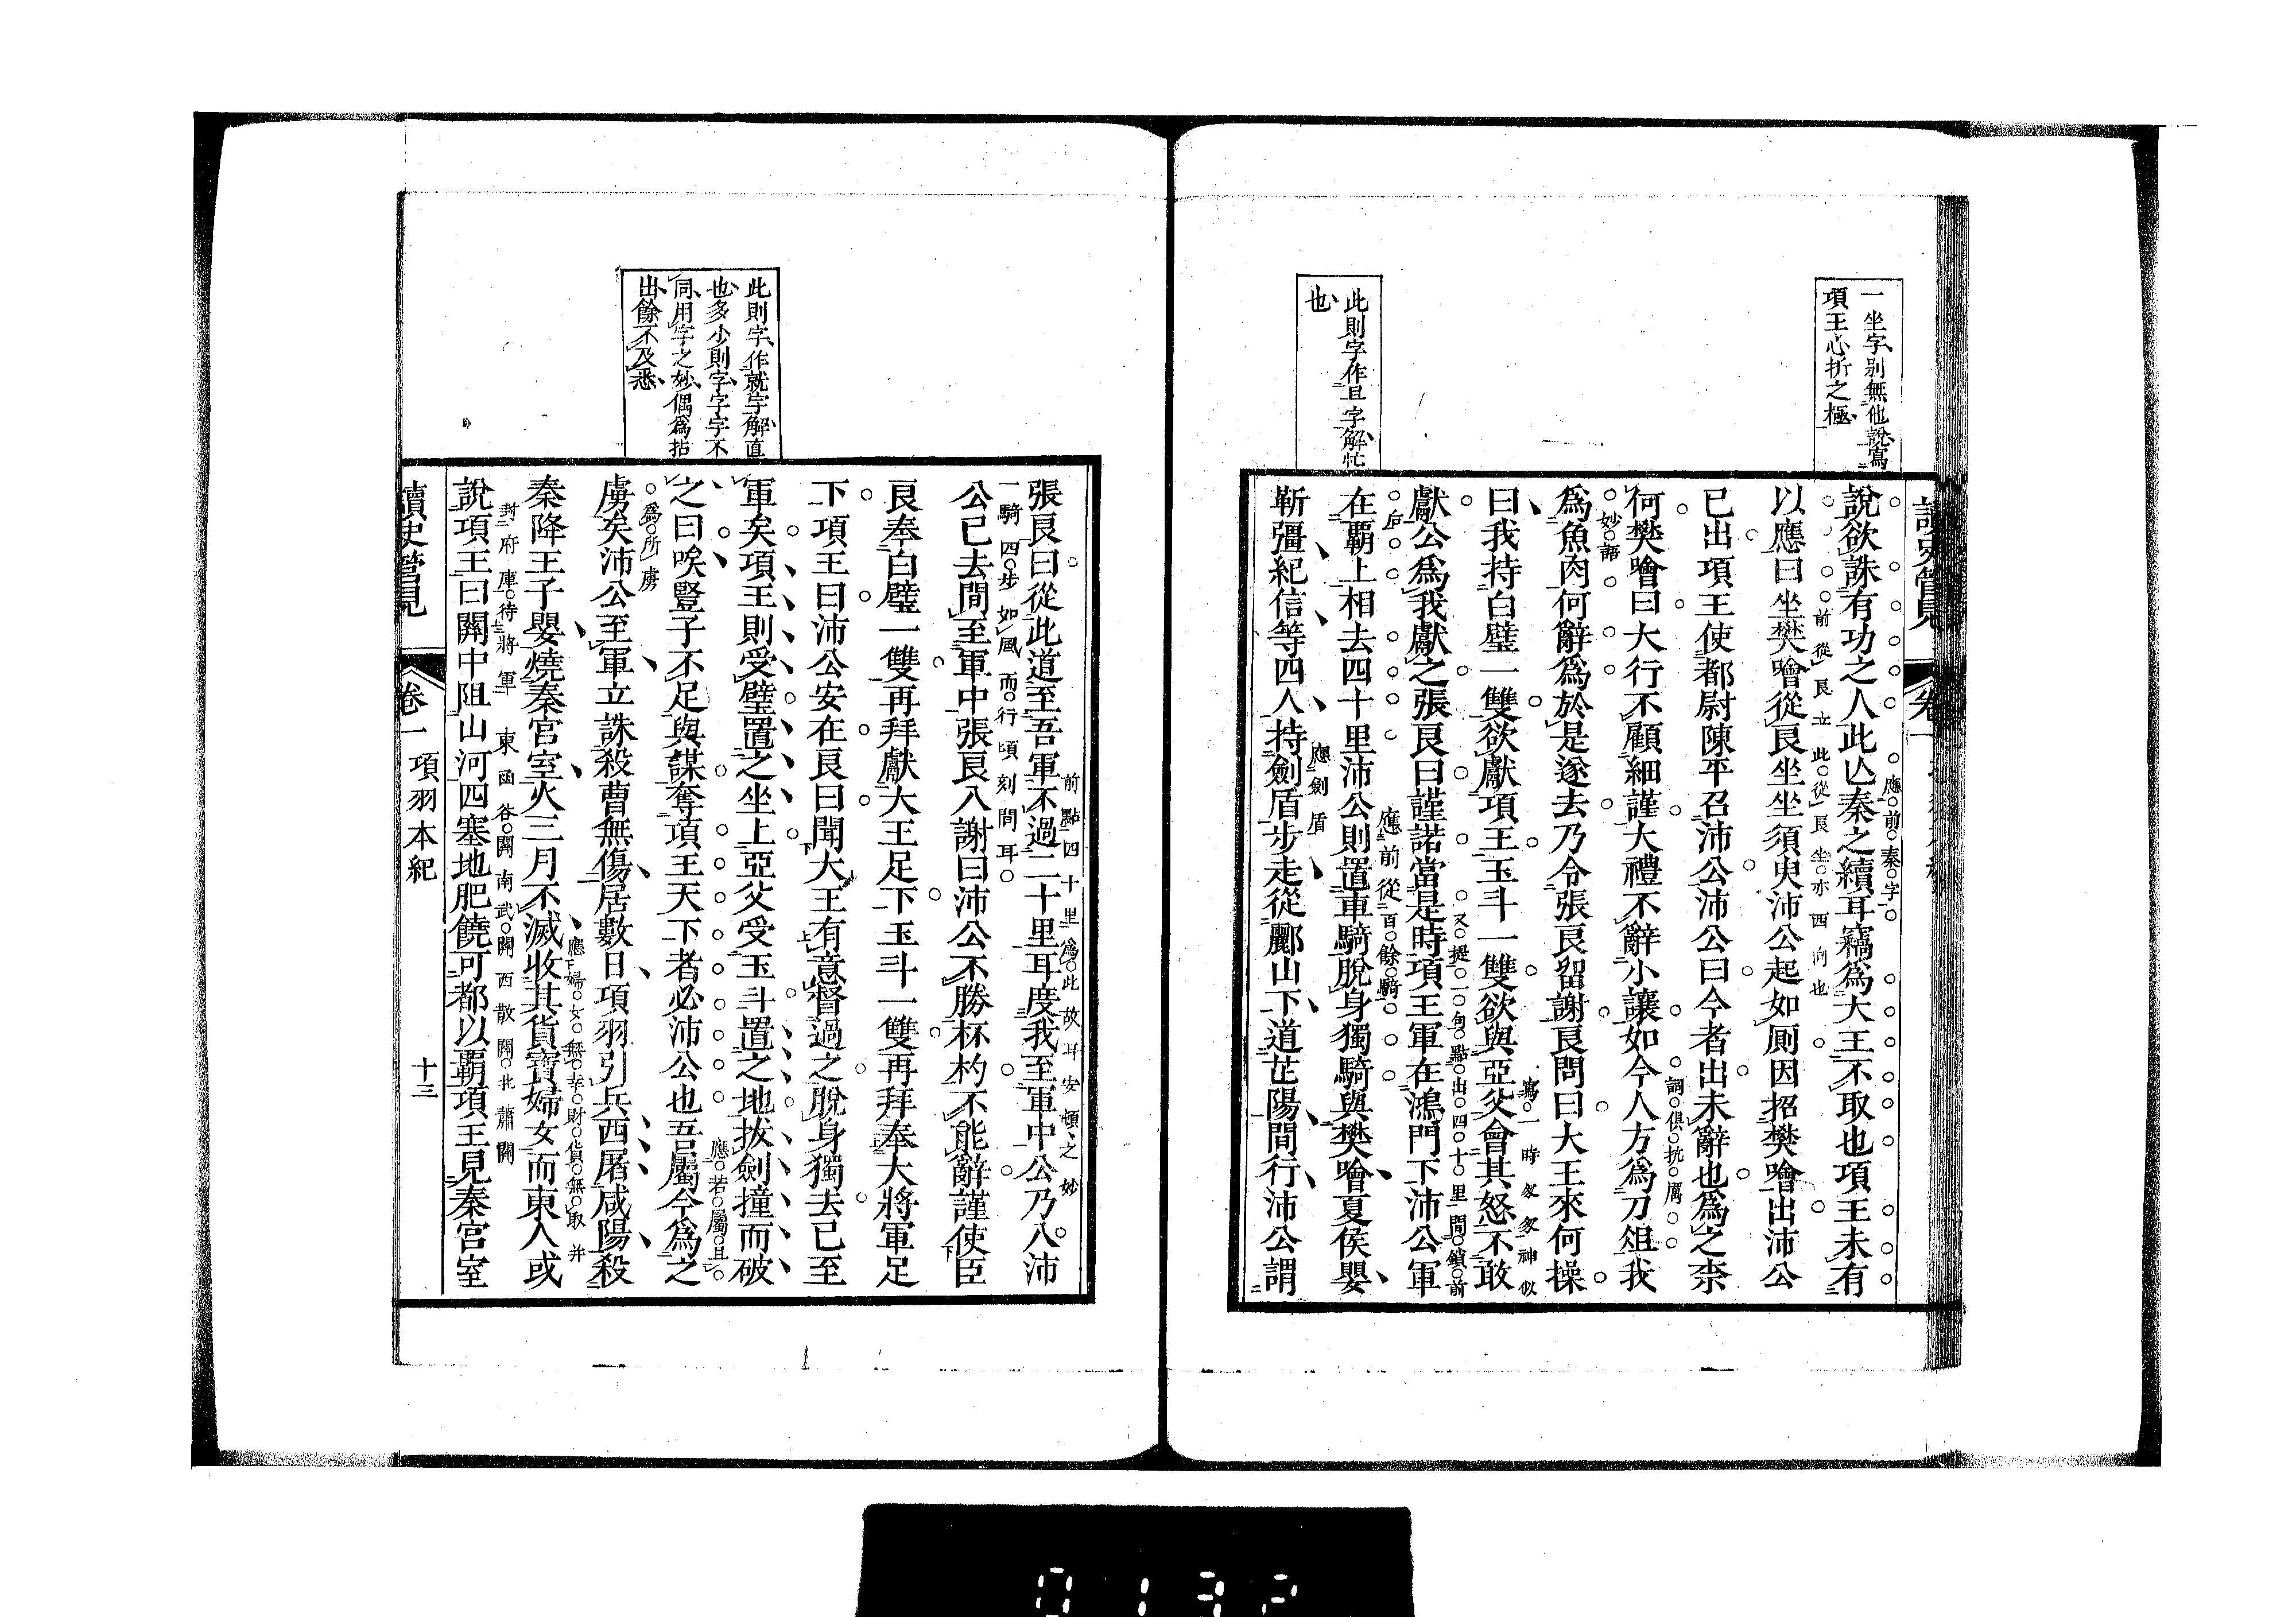 一坐字別無他說寫
項王心折之極
此則字作且字解忙
也
說欲誅有功之人此亾秦之續耳竊爲大王不取也項王未有
應前秦字
以應曰坐樊噲從良坐坐須臾沛公起如厠因招樊噲出沛公
前從良立此從良坐亦西向也
已出項王使都尉陳平召沛公沛公曰今者出未辭也爲之柰
何樊噲曰大行不顧細謹大禮不辭小讓如今人方爲刀俎我
詞俱抗厲
爲魚肉何辭爲於是遂去乃令張良留謝良問曰大王來何操
妙語
曰我持白璧一雙欲獻項王玉斗一雙欲與亞父會其怒不敢
寫一時匆匆神似
獻公爲我獻之張良曰謹諾當是時項王軍在鴻門下沛公軍
又提一句點出四十里間鎖前
在覇上相去四十里沛公則置車騎脫身獨騎與樊噲夏侯嬰
后
應前從百餘騎
靳彊紀信等四人持劍盾步走從酈山下道芷陽間行沛公謂
應劍盾
此則字作就字解直
也多少則字字字不
同用字之妙偶爲拈
出餘不及悉
張良曰從此道至吾軍不過二十里耳度我至軍中公乃入沛
前點四十里爲此故耳安頓之妙
公已去間至軍中張良入謝曰沛公不勝桮杓不能辭謹使臣
一騎四步如風而行頃刻間耳
良奉白璧一雙再拜獻大王足下玉斗一雙再拜奉大將軍足
下項王曰沛公安在良曰聞大王有意督過之脫身獨去已至
軍矣項王則受璧置之坐上亞父受玉斗置之地拔劍撞而破
之曰唉豎子不足與謀奪項王天下者必沛公也吾屬今爲之
應若屬且
虜矣沛公至軍立誅殺曹無傷居數日項羽引兵西屠咸陽殺
爲所虜
秦降王子嬰燒秦宮室火三月不滅收其貨寶婦女而東人或
應下婦女無幸財貨無取并
說項王曰關中阻山河四塞地肥饒可都以覇項王見秦宮室
封府庫待將軍
東函谷關南武關西散關北蕭關
讀史管見
卷一
項羽本紀
十三